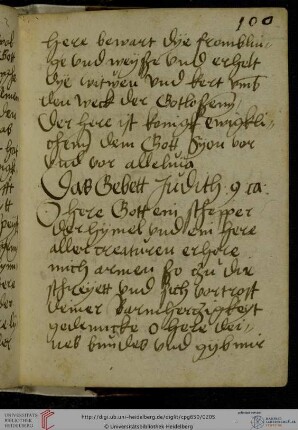 100
here bewart dye fromblin=
ge und weysze und erhelt
dye witwen und kert umb
den weck der Gotloszenn,
Der here ist konigk ewigkli=
chenn dem Gott Syon vor
und vor alleluia
Das Gebett Judith 9 ca:
O here Gott ein schepper
der hymel und ein here
aller creaturen erhore
mich armen szo zu dir
schreyett und sich vortrost
deiner Barmhertzigkeyt
gedencke o here dei=
nes bundes und gyb mir
UNIVERSITÄTS-
BIBLIOTHEK
HEIDELBERG
http://digi.ub.uni-heidelberg.de/diglit/cpg850/0205
© Universitätsbibliothek Heidelberg